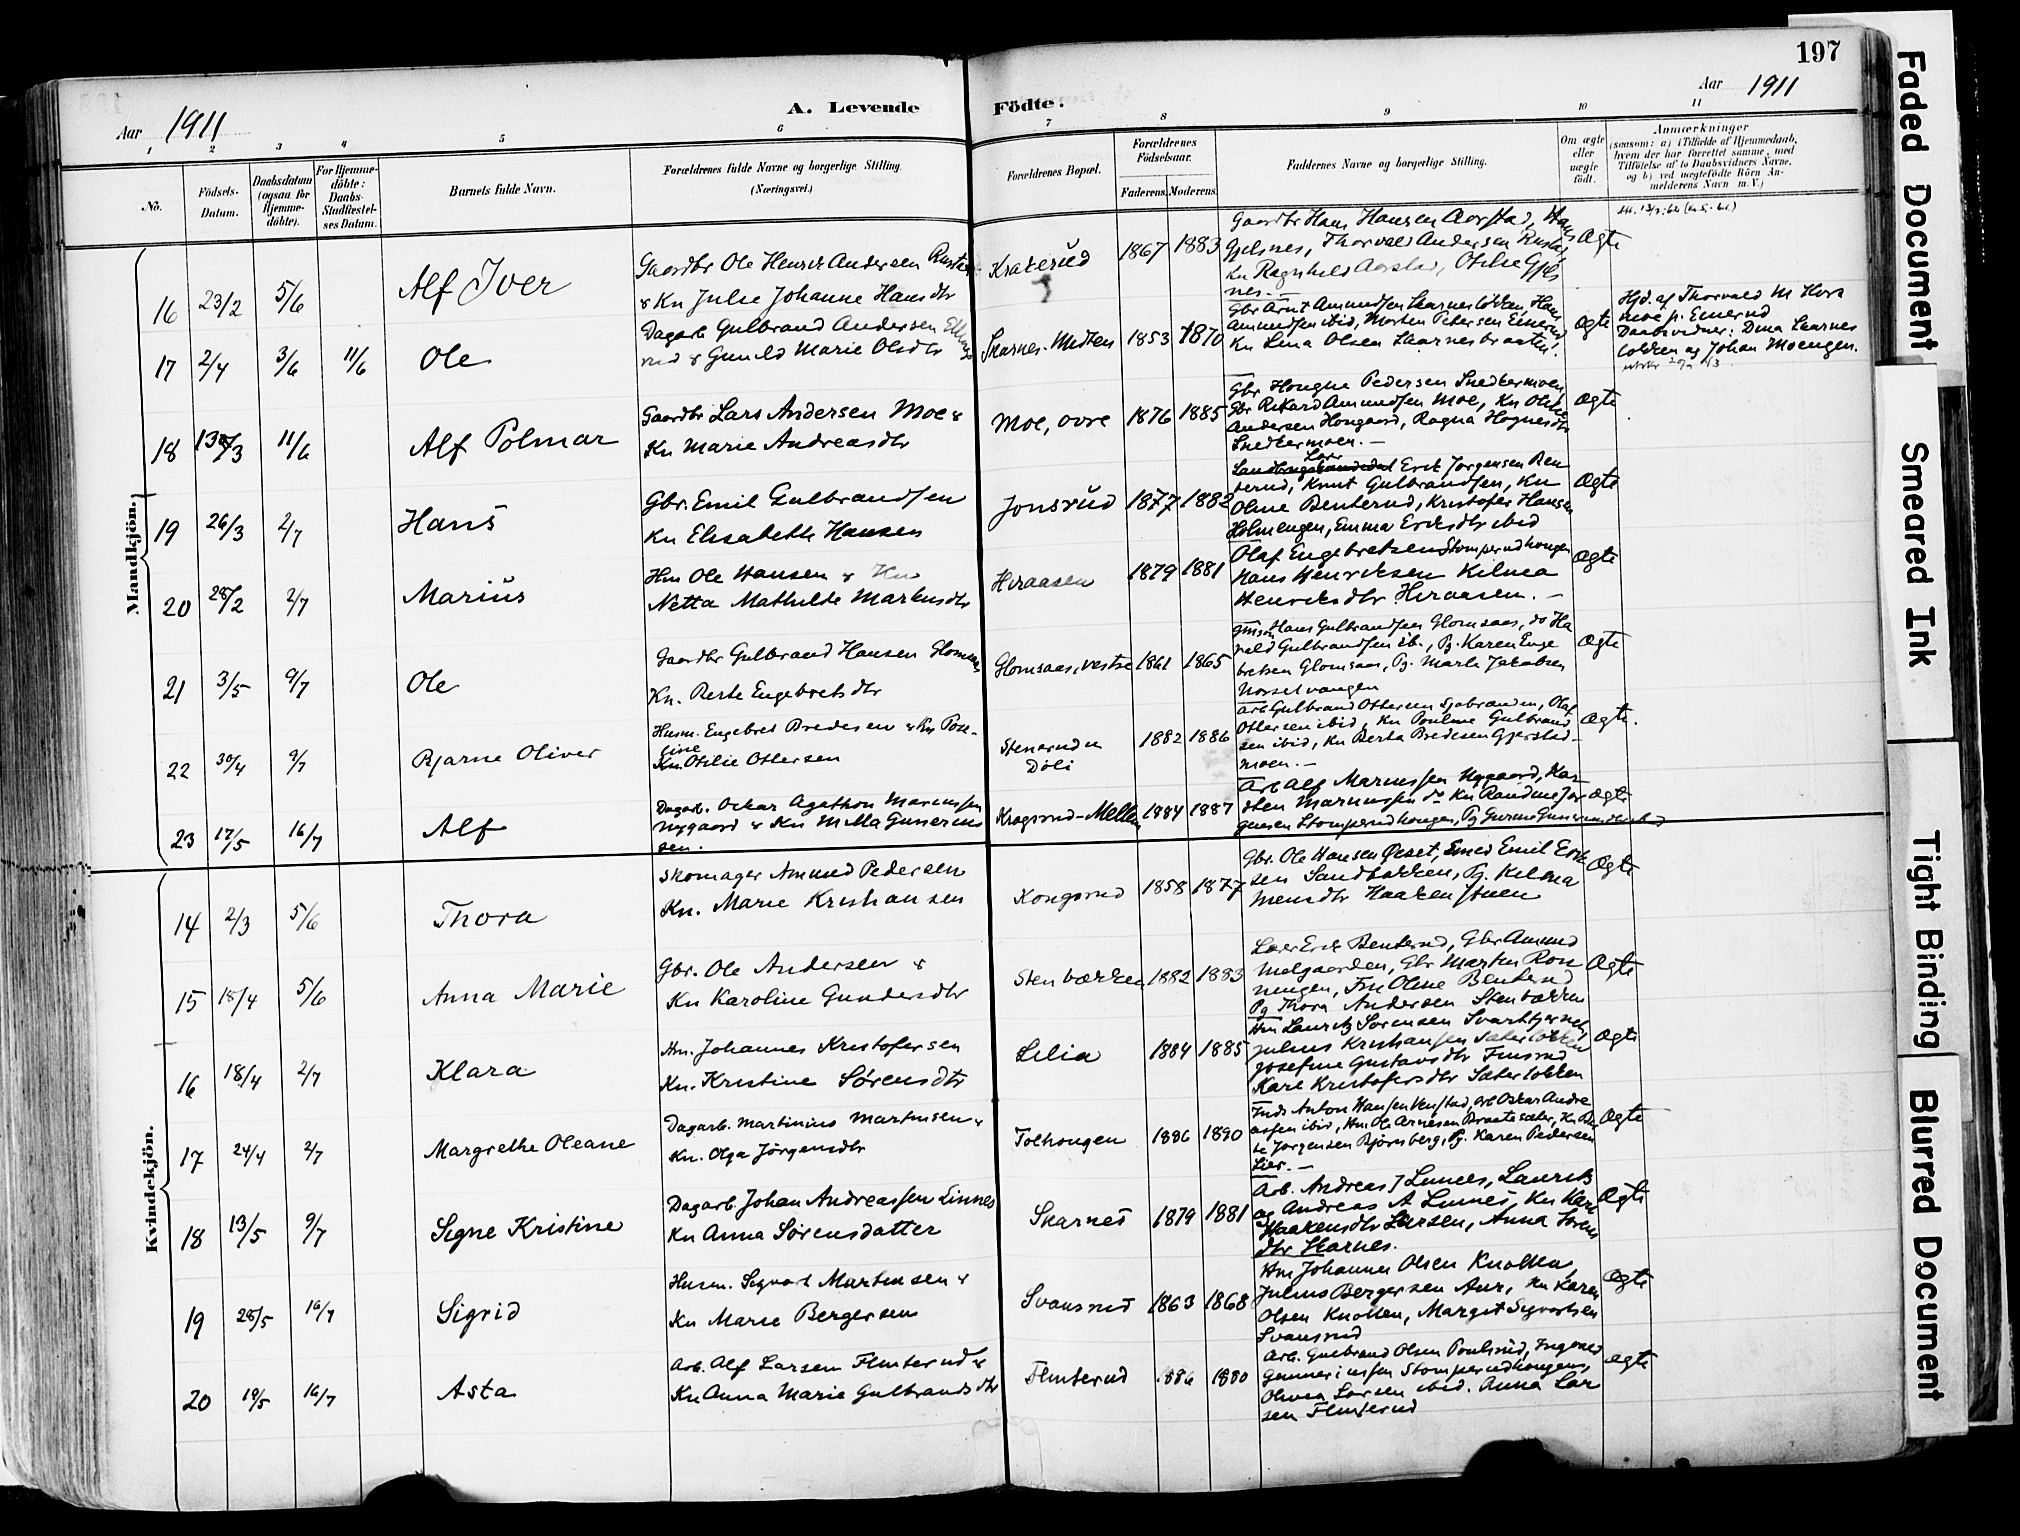 197
Aar 1911
A. Levende Födte.
Aar 1911
1 2 3 4 5 6 7 8 9 10 11
No.
Födsels-Datum.
Daabsdatum (ogsaa for Hjemme-döbte).
For Hjemme-döbte: Daabs-Stadfæstel-ses Datum.
Barnets fulde Navn.
Forældrenes fulde Navne og borgerlige Stilling.
(Næringsvei.)
Forældrenes Bopæl.
Forældrenes Födselsaar.
Faderens. Moderens.
Faddernes Navne og borgerlige Stilling.
Om ægte eller uægte født.
Anmærkninger
(saasom: a) i Tilfælde af Hjemmedaab,
hvem der har forrettet samme, med
Tilföielse af to Daabsvidners Navne,
og b) ved uægtefödte Börn An-
melderens Navn m. V.)
Mandkjön.
16 23/2 5/6 Alf Iver
Gaardbr Ole Henrik Andersen
& Kn Julie Johanne Hansdtr
Kraterud 1867 1883
Gaardbr Hans Hansen Aarstad, Hans
Gjelsnes, Thorvald Andersen Rustad,
Kn Ragnhild Aarstad, Otilie Gjels
nes.—
Ægte
17 2/4 3/6 11/6 Ole
Dagarb Gulbrand Andersen
rud & Gunild Marie Olsdtr
Skarnes-Medten 1853 1870
Gbr Arnt Amundsen Skarnesløkken, Han
Amundsen ibid, Morten Petersen Einerud
Kn Lina Olsen Skarnesbraaten.
Ægte
Hjd. af Thorvald M
Daabsvidner: Dina Skarnes
løkken og Johan Moengen.
18 13/3 11/6 Alf Polmar
Gaardbr Lars Andersen Moe &
Kn Marie Andreasdtr
Moe, øvre 1876 1885
Gbr Hougne Pedersen Snedkermoen,
Gbr Rikard Amundsen Moe, Kn
Andersen Hougaard, Ragna Hognesdtr
Snedkermoen.—
Ægte
19 26/3 2/7 Hans
Gbr. Emil Gulbrandsen
Kn Elisabeth Hansen
Jonsrud 1877 1882
Lærer Erik Jørgensen Ben
terud, Knut Gulbrandsen, Kn
Oline Benterud, Kristofer Hansen
Holmengen, Emma Eriksdtr ibid
Ægte
20 28/2 2/7 Marius
Hm Ole Hansen & Kn
Netta Mathilde Markusdtr
Heraasen 1879 1881
Olaf Engebretsen Stomperudhougen
Hans Henriksen Kilma
Henriksdtr Heraasen.—
Ægte
21 3/5 9/7 Ole
Gaardbr Gulbrand Hansen Glomsaas
Kn. Berte Engebretsdtr
Glomsaas, vestre 1861 1865
Hans Gulbrandsen Glomsaas, do Ha
rald Gulbrandsen ib., Pg. Karen Enge
bretsen Glomsaas, Pg. Marte Jakobsen
Norselvangen
Ægte
22 30/4 9/7 Bjarne Oliver
Husm. Engebret Bredesen & Kn Pou-
line
Kn. Otilie Ottersen
Stenerud u
Døli 1882 1886
Arb Gulbrand Ottersen, Olaf
Ottersen ibid, Kn Pouline Gulbrand
sen ibid, Kn Berta Bredesen Gjerstad-
moen.—
Ægte.
23 17/5 16/7 Alf
Dagarb. Oskar Agathon Marcussen
Nygaard & Kn Milla Gunerius
sen.
Krogsrud-Mellem 1884 1887
Arb Alf Marcussen Nygaard, Kar
sten Marcussen do Kn Randine Jør
gensen Stomperudhougen, Pg
Ægte
Kvindekjön.
14 2/3 5/6 Thora
Skomager Amund Pedersen
Kn. Marie Kristiansen
Kongsrud 1858 1877
Gbr. Ole Hansen Øiset, Smed Emil Erik
sen Sandbakken, Pg. Kilma
Mensdtr Haakenstuen
Ægte
15 18/4 5/6 Anna Marie
Gbr. Ole Andersen &
Kn Karoline Gundersdtr
Stenbækken 1882 1883
Lærer Erik Benterud, Gbr Amund
Melgaarden, Gbr Martin Ron
ningen, Fru Oline Benterud
Pg Thora Andersen Stenbækken
Ægte
16 18/4 2/7 Klara
Hm. Johannes Kristofersen
Kn. Kristine Sørensdtr
Lilia 1884 1885
Hm Lauritz Sørensen Svarttjernet,
Julius Kristiansen Sæterløkken
Josefine Gustavsdtr Finsrud
Kare Kristofersdtr Sæterløkken
Ægte
17 24/4 2/7 Margrethe Oleane
Dagarb. Martinius Martinsen &
Kn. Olga Jørgensdtr
Tolhougen 1886 1890
Inds Anton Hansen Venstad, Arb Oskar Andre
assen ibid, Hm. Ole Arnesen Braatesæter, Kn Be
te Jørgensen Bjørnsberg, Pg. Karen Pedersen
Lier.—
Ægte
18 13/5 9/7 Signe Kristine
Dagarb. Johan Andreassen Linnes
Kn Anna Sørensdatter
Skarnes 1879 1881
Arb. Andreas J Linnes, Lauritz
og Andreas A Linnes, Kn Kari
Haakensdtr Larsen, Anna Søren
dtr Skarnes.
Ægte
19 28/5 16/7 Sigrid
Husm. Sigvart Martinsen &
Kn Marie Bergersen
Svansrud 1863 1868
Hm Johannes Olsen Knolken,
Julius Bergersen Aur, Kn Karen
Olsen Knolken, Margit Sigvartsen
Svansrud
Ægte
20 19/5 16/7 Asta
Arb. Alf Larsen Flinterud &
Kn Anna Marie Gulbrandsdtr
Flinterud 1886 1880
Arb. Gulbrand Olsen Poulsrud, Ingvald
Gunneriussen Stomperudhougen,
Olivia Larsen ibid. Anna Lar
sen Flinterud
Ægte
Faded Document
Smeared Ink
Tight Binding
Blurred Document